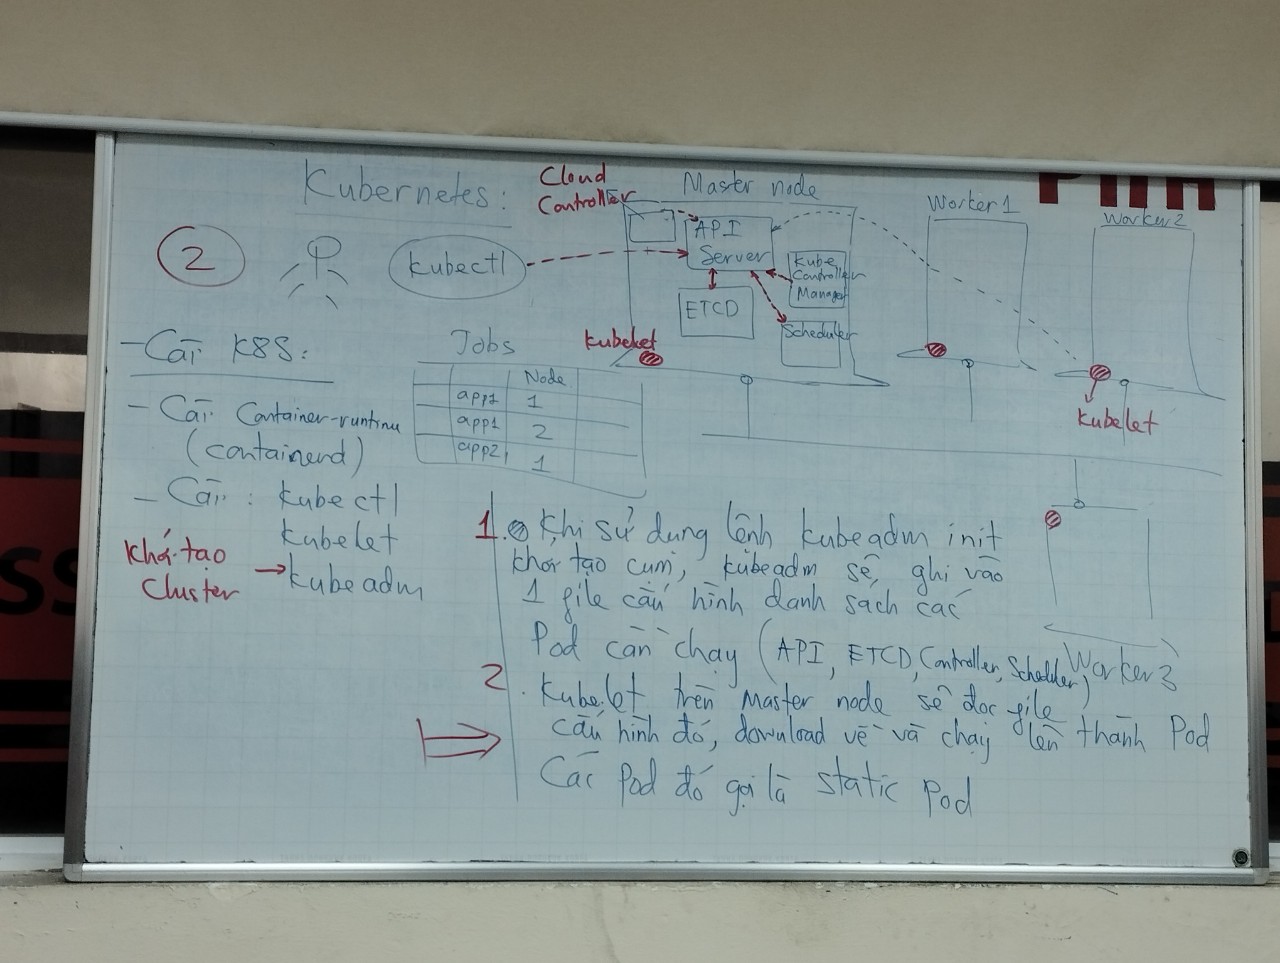 Kubernetes:
2
kubectl
Cloud
Controller
Master node
API
Server
Kube
Controller
Manager
ETCD
Scheduler
kubelet
Worker1
Worker2
kubelet
- Cài K8S:
- Cài Container-runtime
(containerd)
- Cài: kubectl
kubelet
kubeadm
Khởi tạo
Cluster
Jobs
Node
app1 1
app1 2
app2 1
1. Khi sử dụng lệnh kubeadm init
khởi tạo cụm, kubeadm sẽ ghi vào
1 file cấu hình danh sách các
Pod cần chạy (API, ETCD, Controller, Scheduler)
Worker3
2. Kubelet trên Master node sẽ đọc file
cấu hình đó, download về và chạy lên thành Pod
Các Pod đó gọi là static Pod
SS